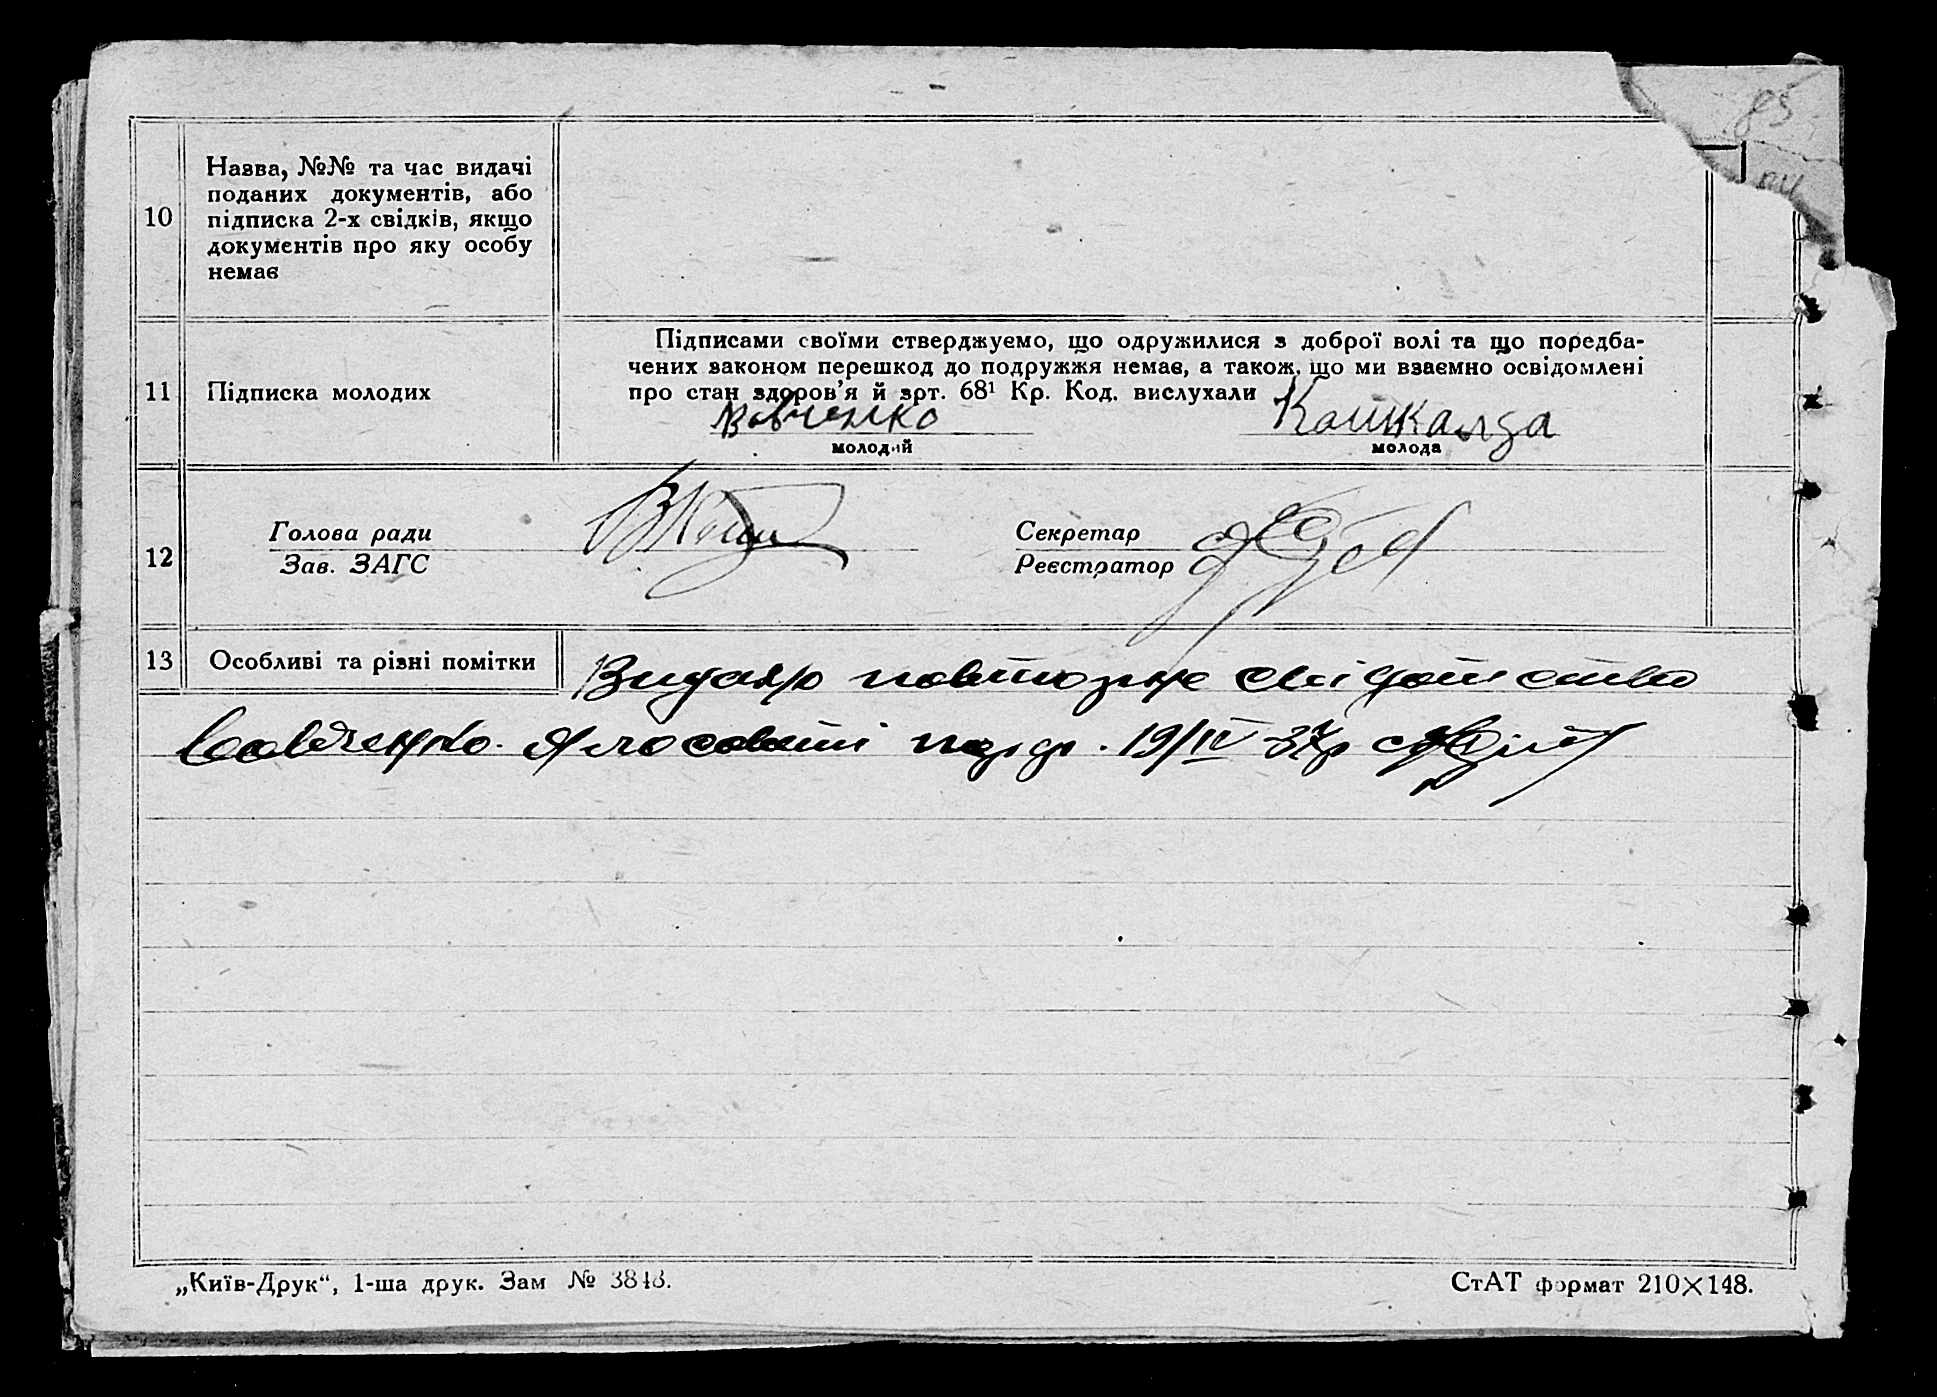 85
10
Назва, №№ та час видачі
поданих документів, або
підписка 2-х свідків, якщо
документів про яку особу
немає
11
Підписка молодих
Підписами своїми стверджуємо, що одружилися з доброї волі та що поредба-
чених законом перешкод до подружжя немає, а також, що ми взаємно освідомлені
про стан здоров'я й арт. 68¹ Кр. Код. вислухали
Вовченко
Кошкалда
молодий
молода
12
Голова ради
Зав. ЗАГС
Секретар
Реєстратор
13
Особливі та різні помітки
Видано повторне свідотство
Вовченко 19/IV 37р
„Київ-Друк“, 1-ша друк. Зам № 3848.
СтАТ формат 210×148.